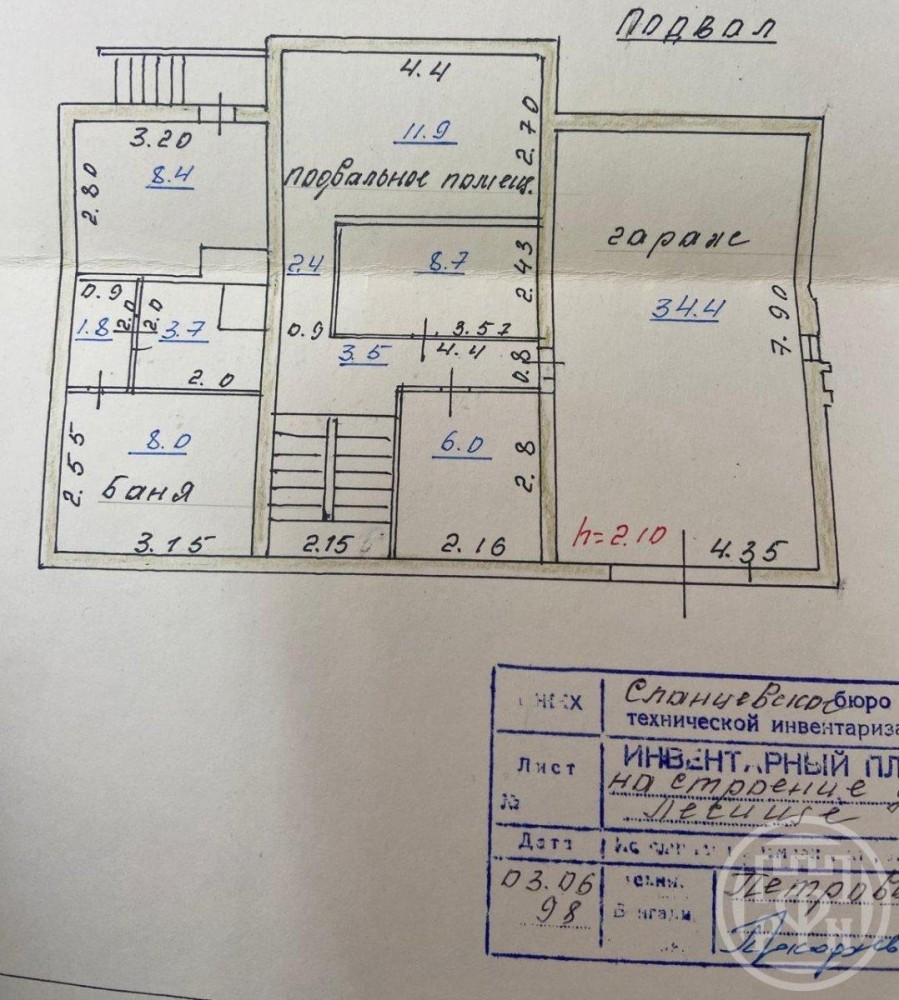 Подвал
4.4
11.9
2.70
3.20
8.4
2.80
подвальное помещ.
гараж
2.4
8.7
2.43
34.4
7.90
0.9
1.8
2.0
2.0
3.7
0.9
3.57
3.5
4.4
0.8
2.0
8.0
2.55
баня
6.0
2.8
3.15
2.15
2.16
h=2.10
4.35
Сланцевское бюро
технической инвентариза
Лист
№
ИНВЕНТАРНЫЙ ПЛ
на строение
Дата
03.06
98